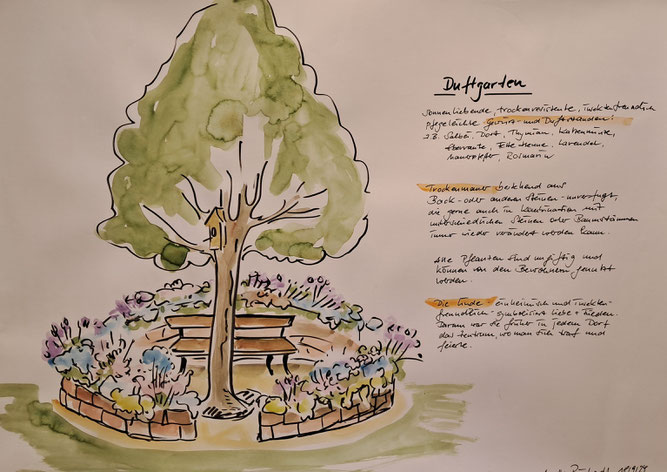 Duftgarten
Sonnenliebende, trockenresistente, insektenfreundlich
pflegeleichte Gewürz- und Duftstauden:
z.B. Salbei, Dost, Thymian, Katzenminze,
Eberraute, Fette Henne, Lavendel,
Mauerpfeffer, Rosmarin
Trockenmauer bestehend aus
Back- oder anderen Steinen - unverfugt,
die gerne auch in Kombination mit
unterschiedlichen Steinen oder Baumstämmen
immer wieder verändert werden kann.
Alle Pflanzen sind ungiftig und
können von den Bewohnern genutzt
werden.
Die Linde - einheimisch und insekten-
freundlich - symbolisiert Liebe + Frieden.
Darum war sie früher in jedem Dorf
das Zentrum, wo man sich traf und
feierte.